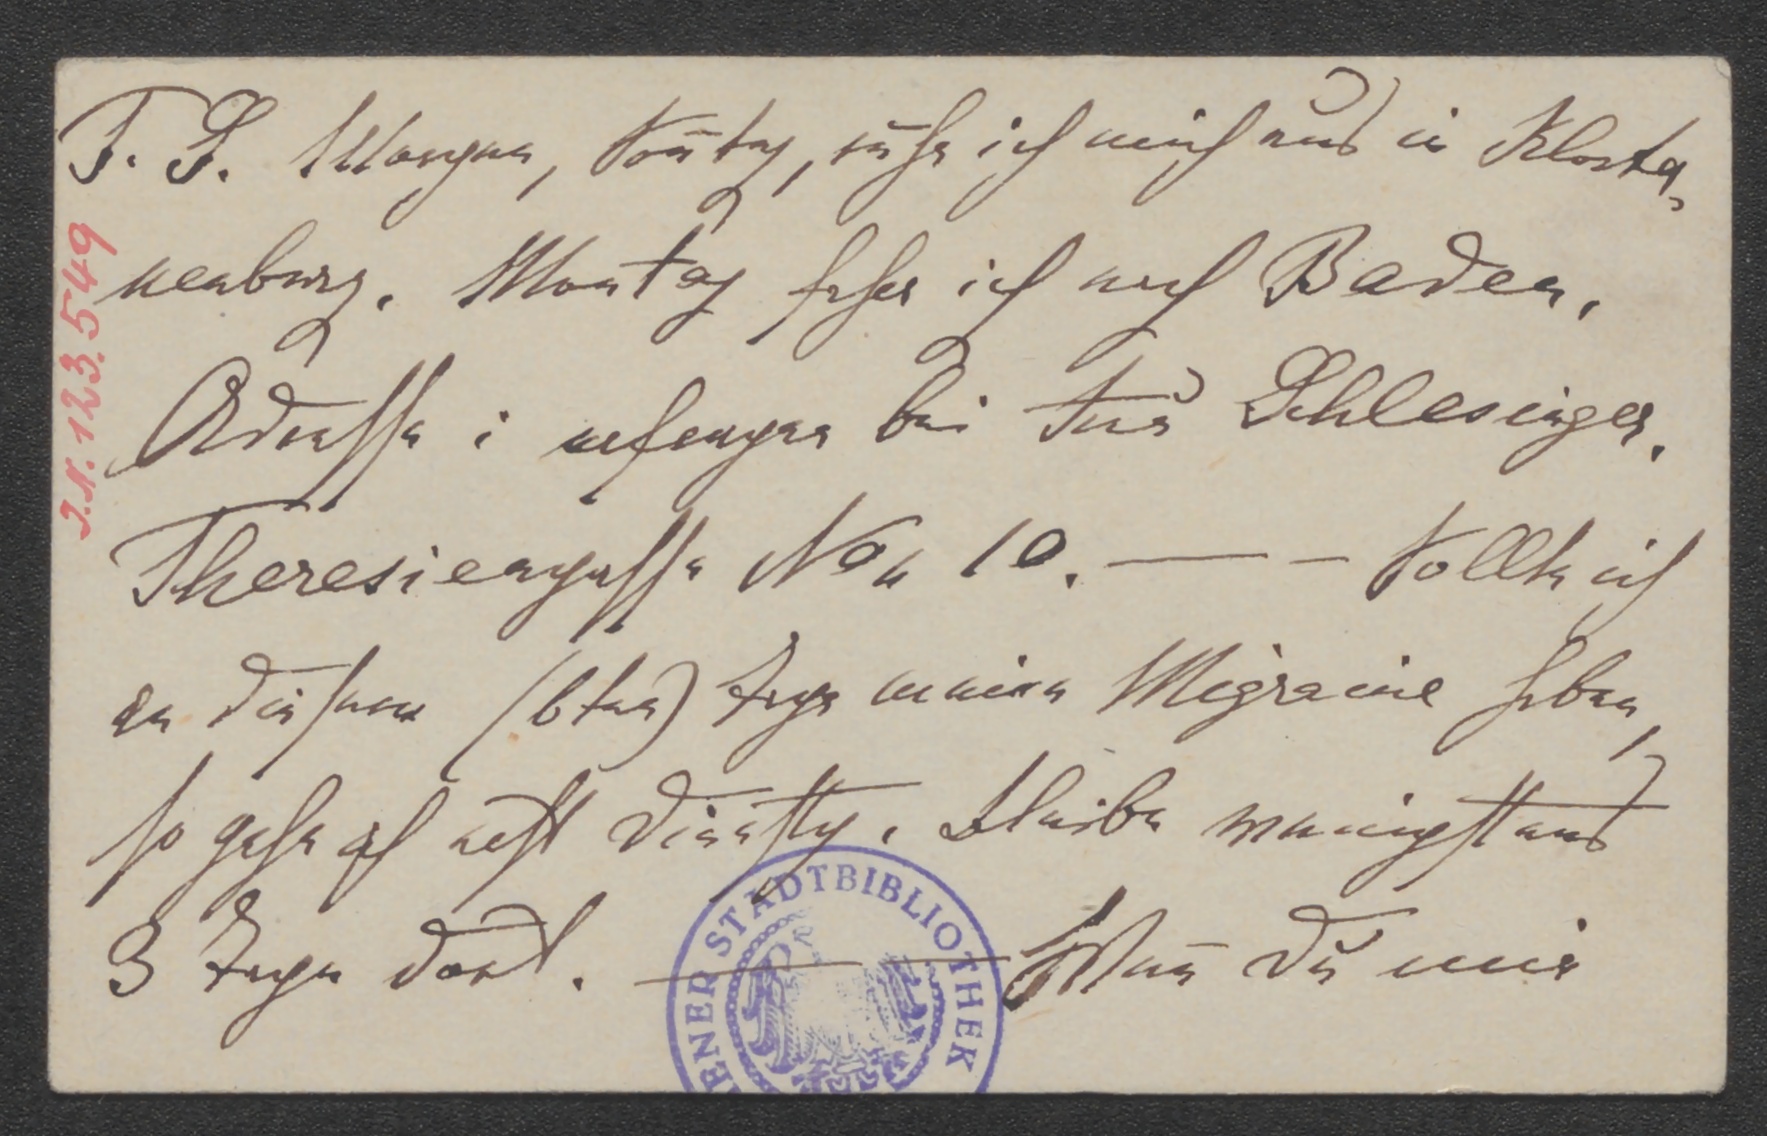 T. S. Morgen, Soñtag, ruhe ich mich aus in Kloster-
neuburg. Montag fahre ich nach Baden.
Adresse i anfangen bei Frau Schlesinger.
Theresiengasse Nro 10. — — Sollte ich
an diesem (6ten) Tage meine Migraine haben,
so gehe ich erst Dienstag. Bleibe wenigstens
3 Tage dort. — — Weñ Du mir
J.N. 123.549
WIENER STADTBIBLIOTHEK